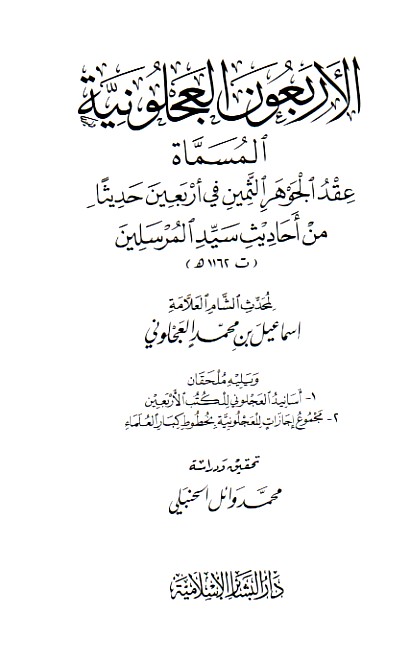 الأَرْبَعُونَ العَجْلُونِيَّة
المُسَمَّاة
عِقْدُ الجَوْهَرِ الثَّمِينِ فِي أَرْبَعِينَ حَدِيثًا
مِنْ أَحَادِيثِ سَيِّدِ المُرْسَلِينَ
(ت ١١٦٢ ه)
لمُحَدِّثِ الشَّامِ العَلَّامَةِ
اسماعيل بن محمد العجلوني
وَيَلِيهِ مُلْحَقَان
١- أسانيد العجلوني للكتب الأربعين
٢- مجموع إجازات للعجلونية بخطوط كبار العلماء
تحقيق ودراسة
محمد وائل الحنبلي
دار البشائر الإسلامية